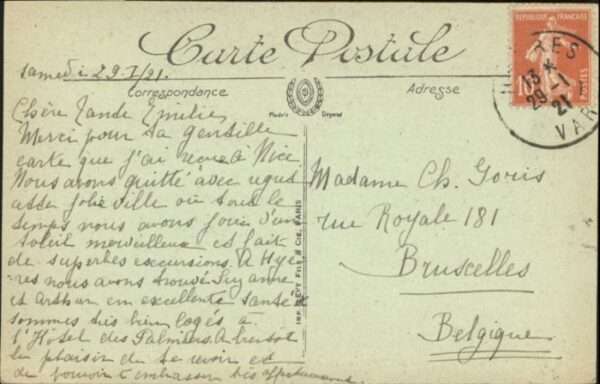 Carte Postale
samedi 29.1/21.
Correspondance
Adresse
Modèle Déposé
REPUBLIQUE FRANÇAISE
10
POSTES
RES
13 *
29 - 1
21
VAR
Chère Tante Emilie,
Merci pour ta gentille
carte que j'ai reçue à Nice.
Nous avons quitté avec regret
cette jolie ville où tout le
temps nous avons joui d'un
soleil merveilleux et fait
de superbes excursions. A Hyè-
res nous avons trouvé Suzanne
et Arthur en excellente santé &
sommes très bien logés à
l'Hôtel des Palmiers. A bientôt
le plaisir de te revoir et
de pouvoir t'embrasser bis affectueusement.
IMP. LEVY FILS & CIE, PARIS
Madame Ch. Goris
rue Royale 181
Bruxelles
Belgique